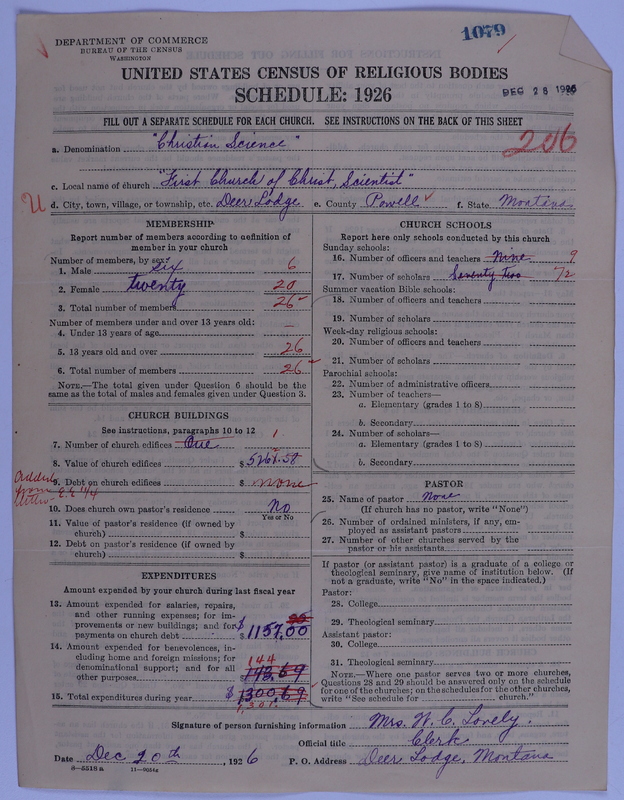 DEPARTMENT OF COMMERCE
BUREAU OF THE CENSUS
WASHINGTON
1079
UNITED STATES CENSUS OF RELIGIOUS BODIES
SCHEDULE: 1926
DEC 28 1926
FILL OUT A SEPARATE SCHEDULE FOR EACH CHURCH. SEE INSTRUCTIONS ON THE BACK OF THIS SHEET
206
a. Denomination "Christian Science"
c. Local name of church "First Church of Christ, Scientist"
U
d. City, town, village, or township, etc. Deer Lodge e. County Powell f. State Montana
MEMBERSHIP
Report number of members according to definition of
member in your church
Number of members, by sex:
1. Male six 6
2. Female twenty 20
3. Total number of members 26
Number of members under and over 13 years old:
4. Under 13 years of age —
5. 13 years old and over 26
6. Total number of members 26
NOTE.—The total given under Question 6 should be the
same as the total of males and females given under Question 3.
CHURCH BUILDINGS
See instructions, paragraphs 10 to 12
7. Number of church edifices One 1
8. Value of church edifices $5261.50
Added
from
9. Debt on church edifices $ none
10. Does church own pastor's residence No
Yes or No
11. Value of pastor's residence (if owned by
church) $
12. Debt on pastor's residence (if owned by
church) $
EXPENDITURES
Amount expended by your church during last fiscal year
13. Amount expended for salaries, repairs,
and other running expenses; for im-
provements or new buildings; and for
payments on church debt $1157.00
14. Amount expended for benevolences, in-
cluding home and foreign missions; for
denominational support; and for all
other purposes 144 143.69
15. Total expenditures during year $1300.69
1,301
CHURCH SCHOOLS
Report here only schools conducted by this church
Sunday schools:
16. Number of officers and teachers nine 9
17. Number of scholars Seventy two 72
Summer vacation Bible schools:
18. Number of officers and teachers
19. Number of scholars
Week-day religious schools:
20. Number of officers and teachers
21. Number of scholars
Parochial schools:
22. Number of administrative officers
23. Number of teachers—
a. Elementary (grades 1 to 8)
b. Secondary
24. Number of scholars—
a. Elementary (grades 1 to 8)
b. Secondary
PASTOR
25. Name of pastor None
(If church has no pastor, write "None")
26. Number of ordained ministers, if any, em-
ployed as assistant pastors
27. Number of other churches served by the
pastor or his assistants
If pastor (or assistant pastor) is a graduate of a college or
theological seminary, give name of institution below. (If
not a graduate, write "No" in the space indicated.)
Pastor:
28. College
29. Theological seminary
Assistant pastor:
30. College
31. Theological seminary
NOTE.—Where one pastor serves two or more churches,
Questions 28 and 29 should be answered only on the schedule
for one of the churches; on the schedules for the other churches,
write "See schedule for church."
Signature of person furnishing information Mrs. W. C. Lovely.
Official title Clerk
Date Dec 20th, 1926 P. O. Address Deer Lodge, Montana
8—5518a 11—9034g